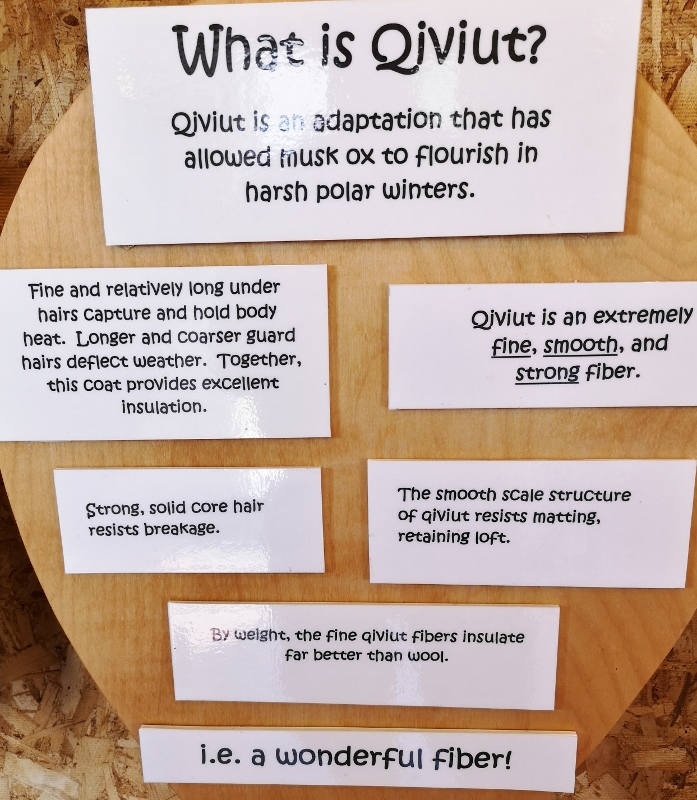 What is Qiviut?
Qiviut is an adaptation that has
allowed musk ox to flourish in
harsh polar winters.
Fine and relatively long under
hairs capture and hold body
heat. Longer and coarser guard
hairs deflect weather. Together,
this coat provides excellent
insulation.
Qiviut is an extremely
fine, smooth, and
strong fiber.
Strong, solid core hair
resists breakage.
The smooth scale structure
of qiviut resists matting,
retaining loft.
By weight, the fine qiviut fibers insulate
far better than wool.
i.e. a wonderful fiber!